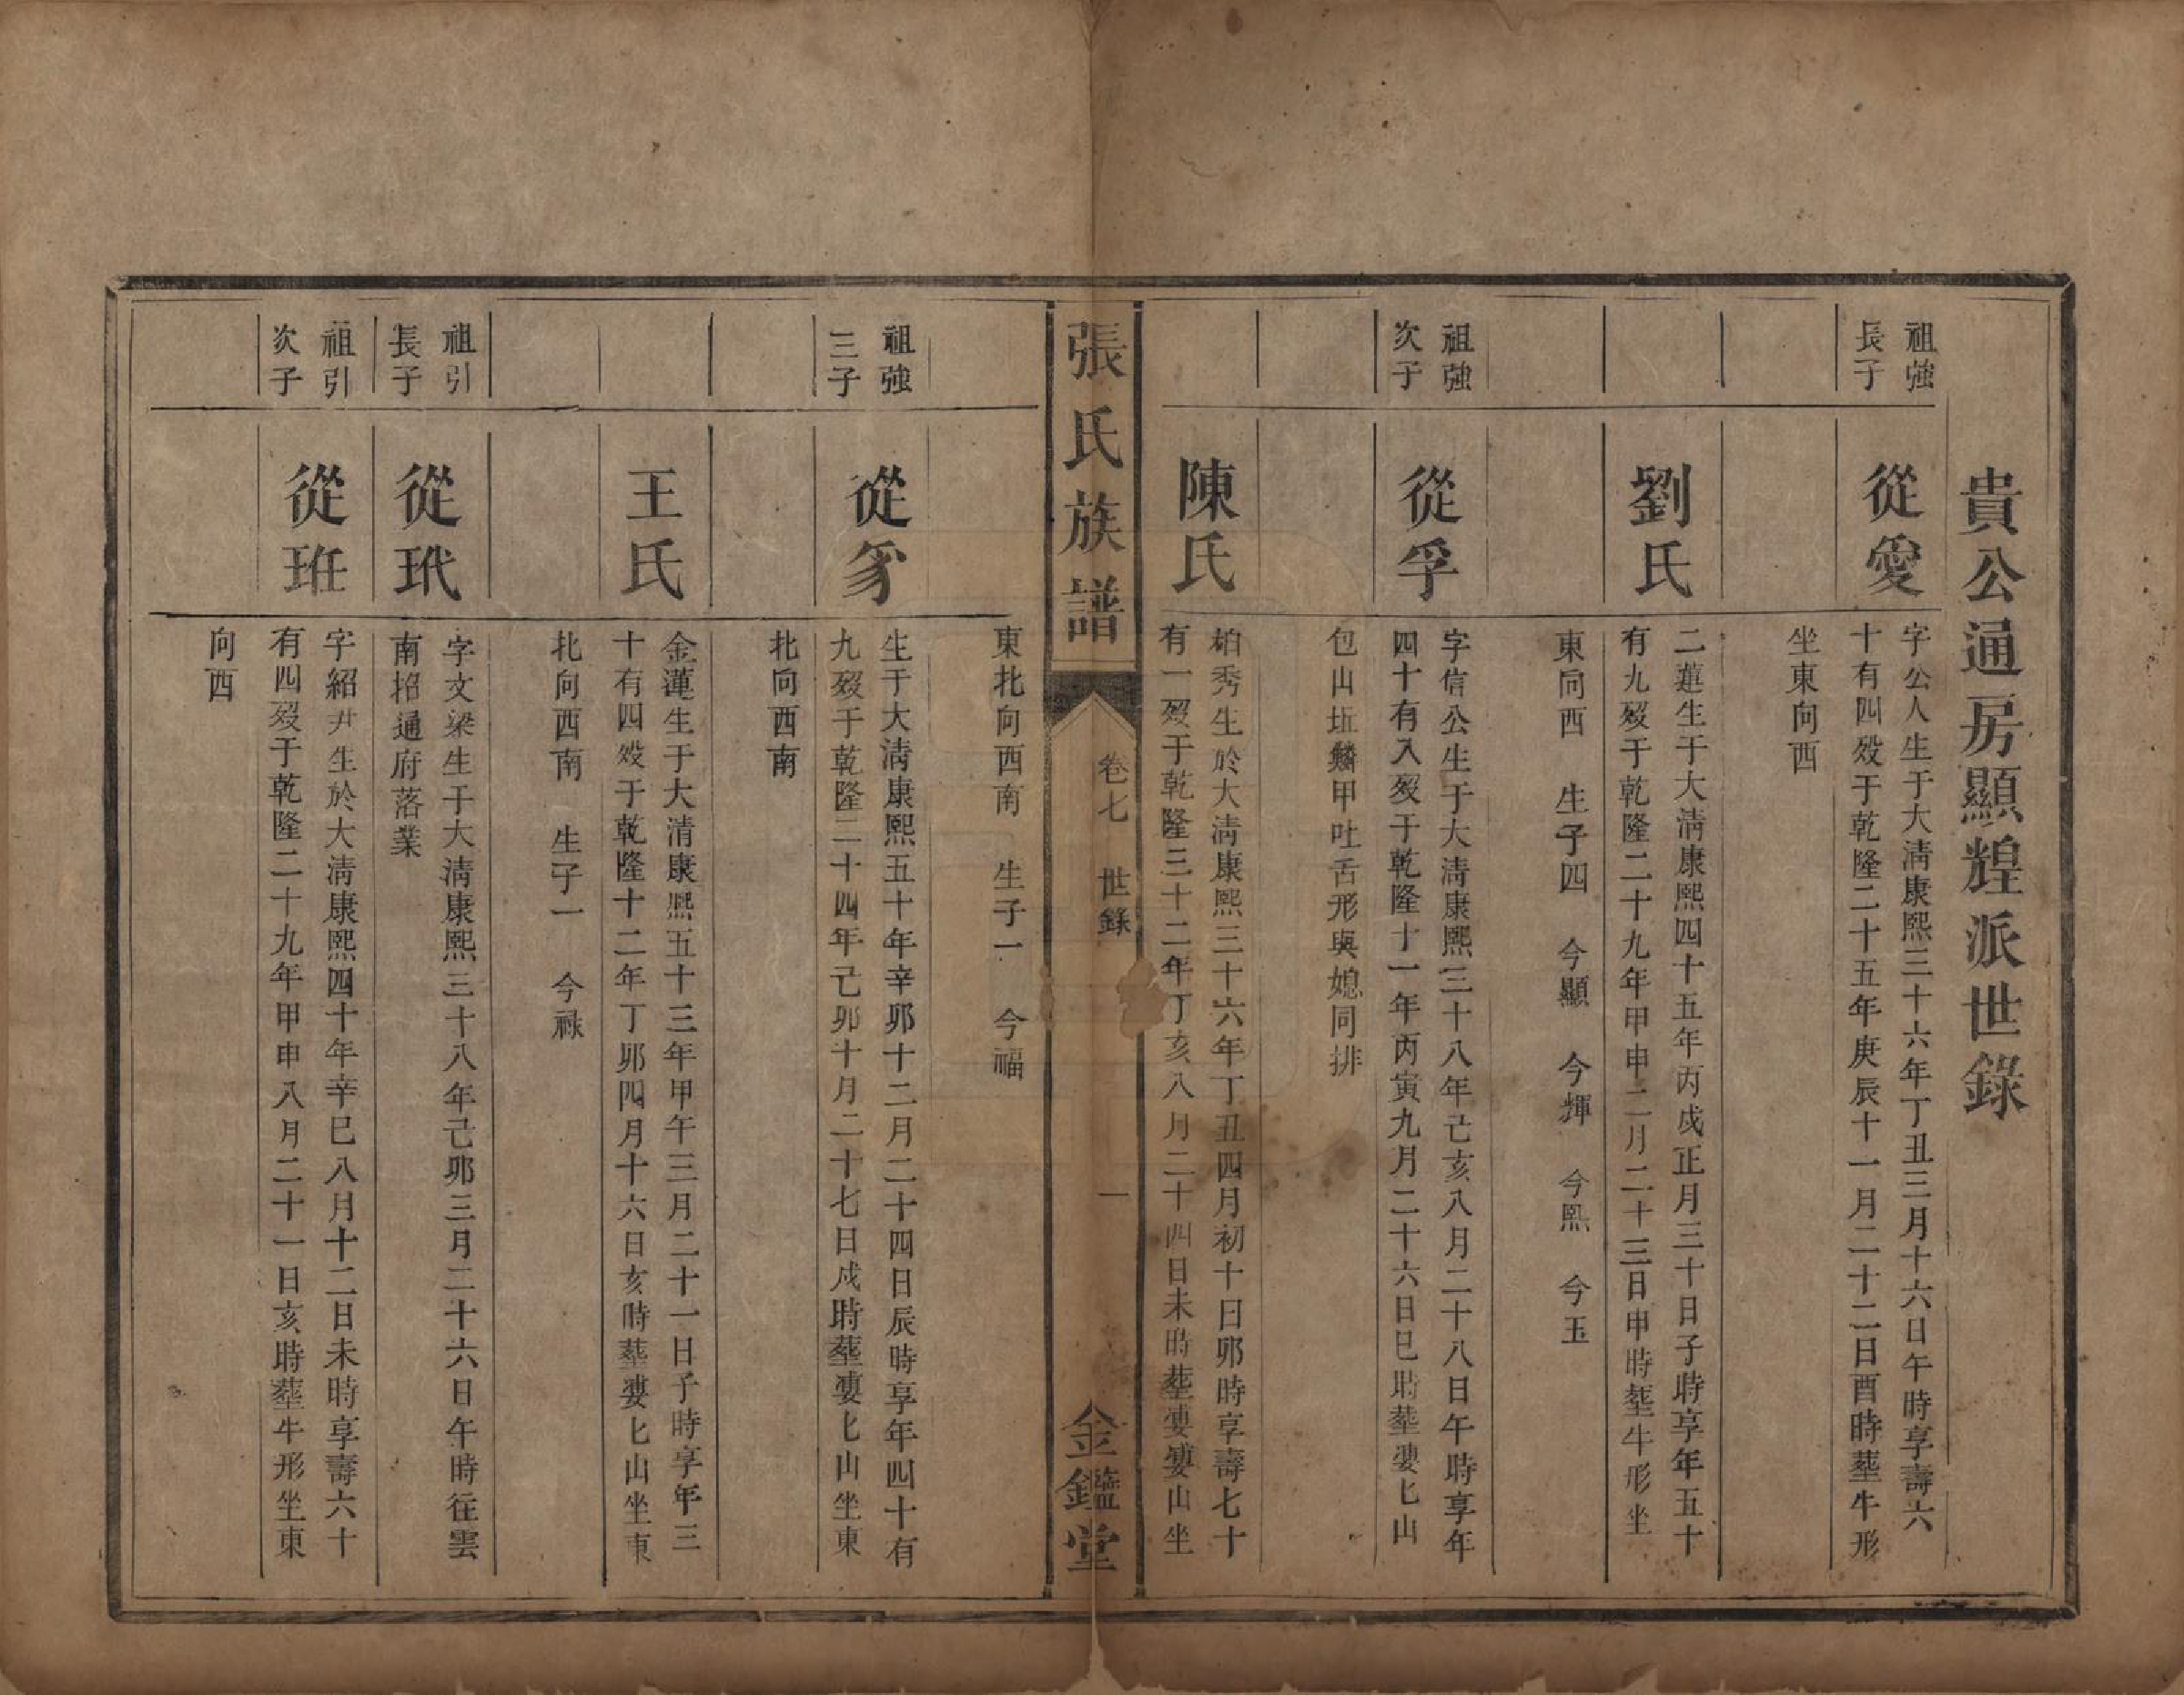 貴公通房顯煌派世錄
祖強
長子
從愛
字公人生于大清康熙三十六年丁丑三月十六日午時享壽六
十有四歿于乾隆二十五年庚辰十一月二十二日酉時塟牛形
坐東向西
劉氏
二蓮生于大清康熙四十五年丙戌正月三十日子時享年五十
有九歿于乾隆二十九年甲申二月二十三日申時塟牛形坐
東向西 生子四 今顯 今輝 今熙 今玉
祖強
次子
從孚
字信公生于大清康熙三十八年己亥八月二十八日午時享年
四十有八歿于乾隆十一年丙寅九月二十六日巳時塟婁匕山
包山坵鱗甲吐舌形與媳同排
陳氏
柏秀生於大清康熙三十六年丁丑四月初十日卯時享壽七十
有一歿于乾隆三十二年丁亥八月二十四日未時塟婁婁山坐
東北向西南 生子一 今福
張氏族譜
卷七 世錄
一
金鑑堂
祖強
三子
從豸
生于大清康熙五十年辛卯十二月二十四日辰時享年四十有
九歿于乾隆二十四年己卯十月二十七日戌時塟婁匕山坐東
北向西南
王氏
金蓮生于大清康熙五十三年甲午三月二十一日子時享年三
十有四歿于乾隆十二年丁卯四月十六日亥時塟婁匕山坐東
北向西南 生子一 今祿
祖引
長子
從玳
字文梁生于大清康熙三十八年己卯三月二十六日午時往雲
南招通府落業
祖引
次子
從珄
字紹尹生於大清康熙四十年辛巳八月十二日未時享壽六十
有四歿于乾隆二十九年甲申八月二十一日亥時塟牛形坐東
向西